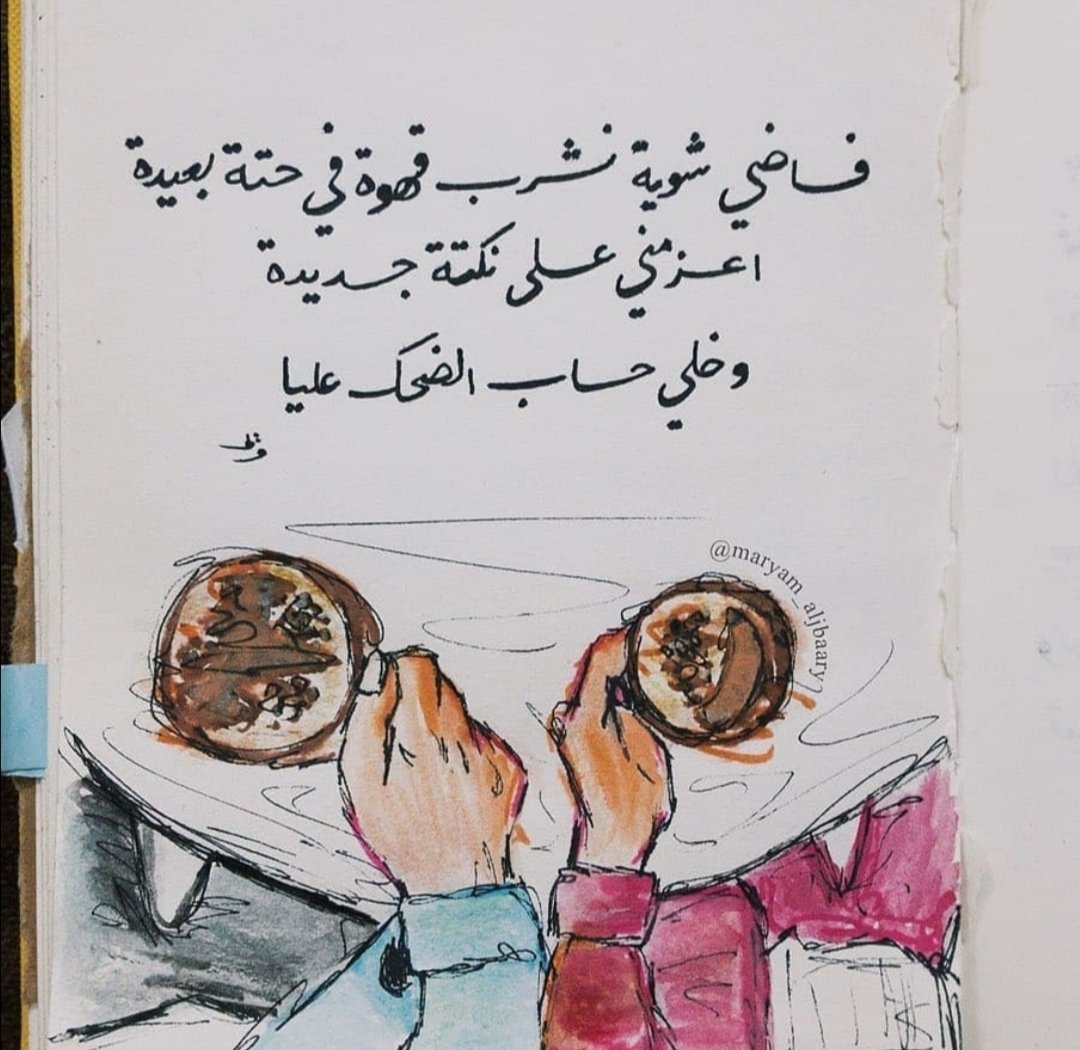 فاضي شوية نشرب قهوة في حتة بعيدة
اعزمني على نكتة جديدة
وخلي حساب الضحك عليا
@maryam_aljbaary